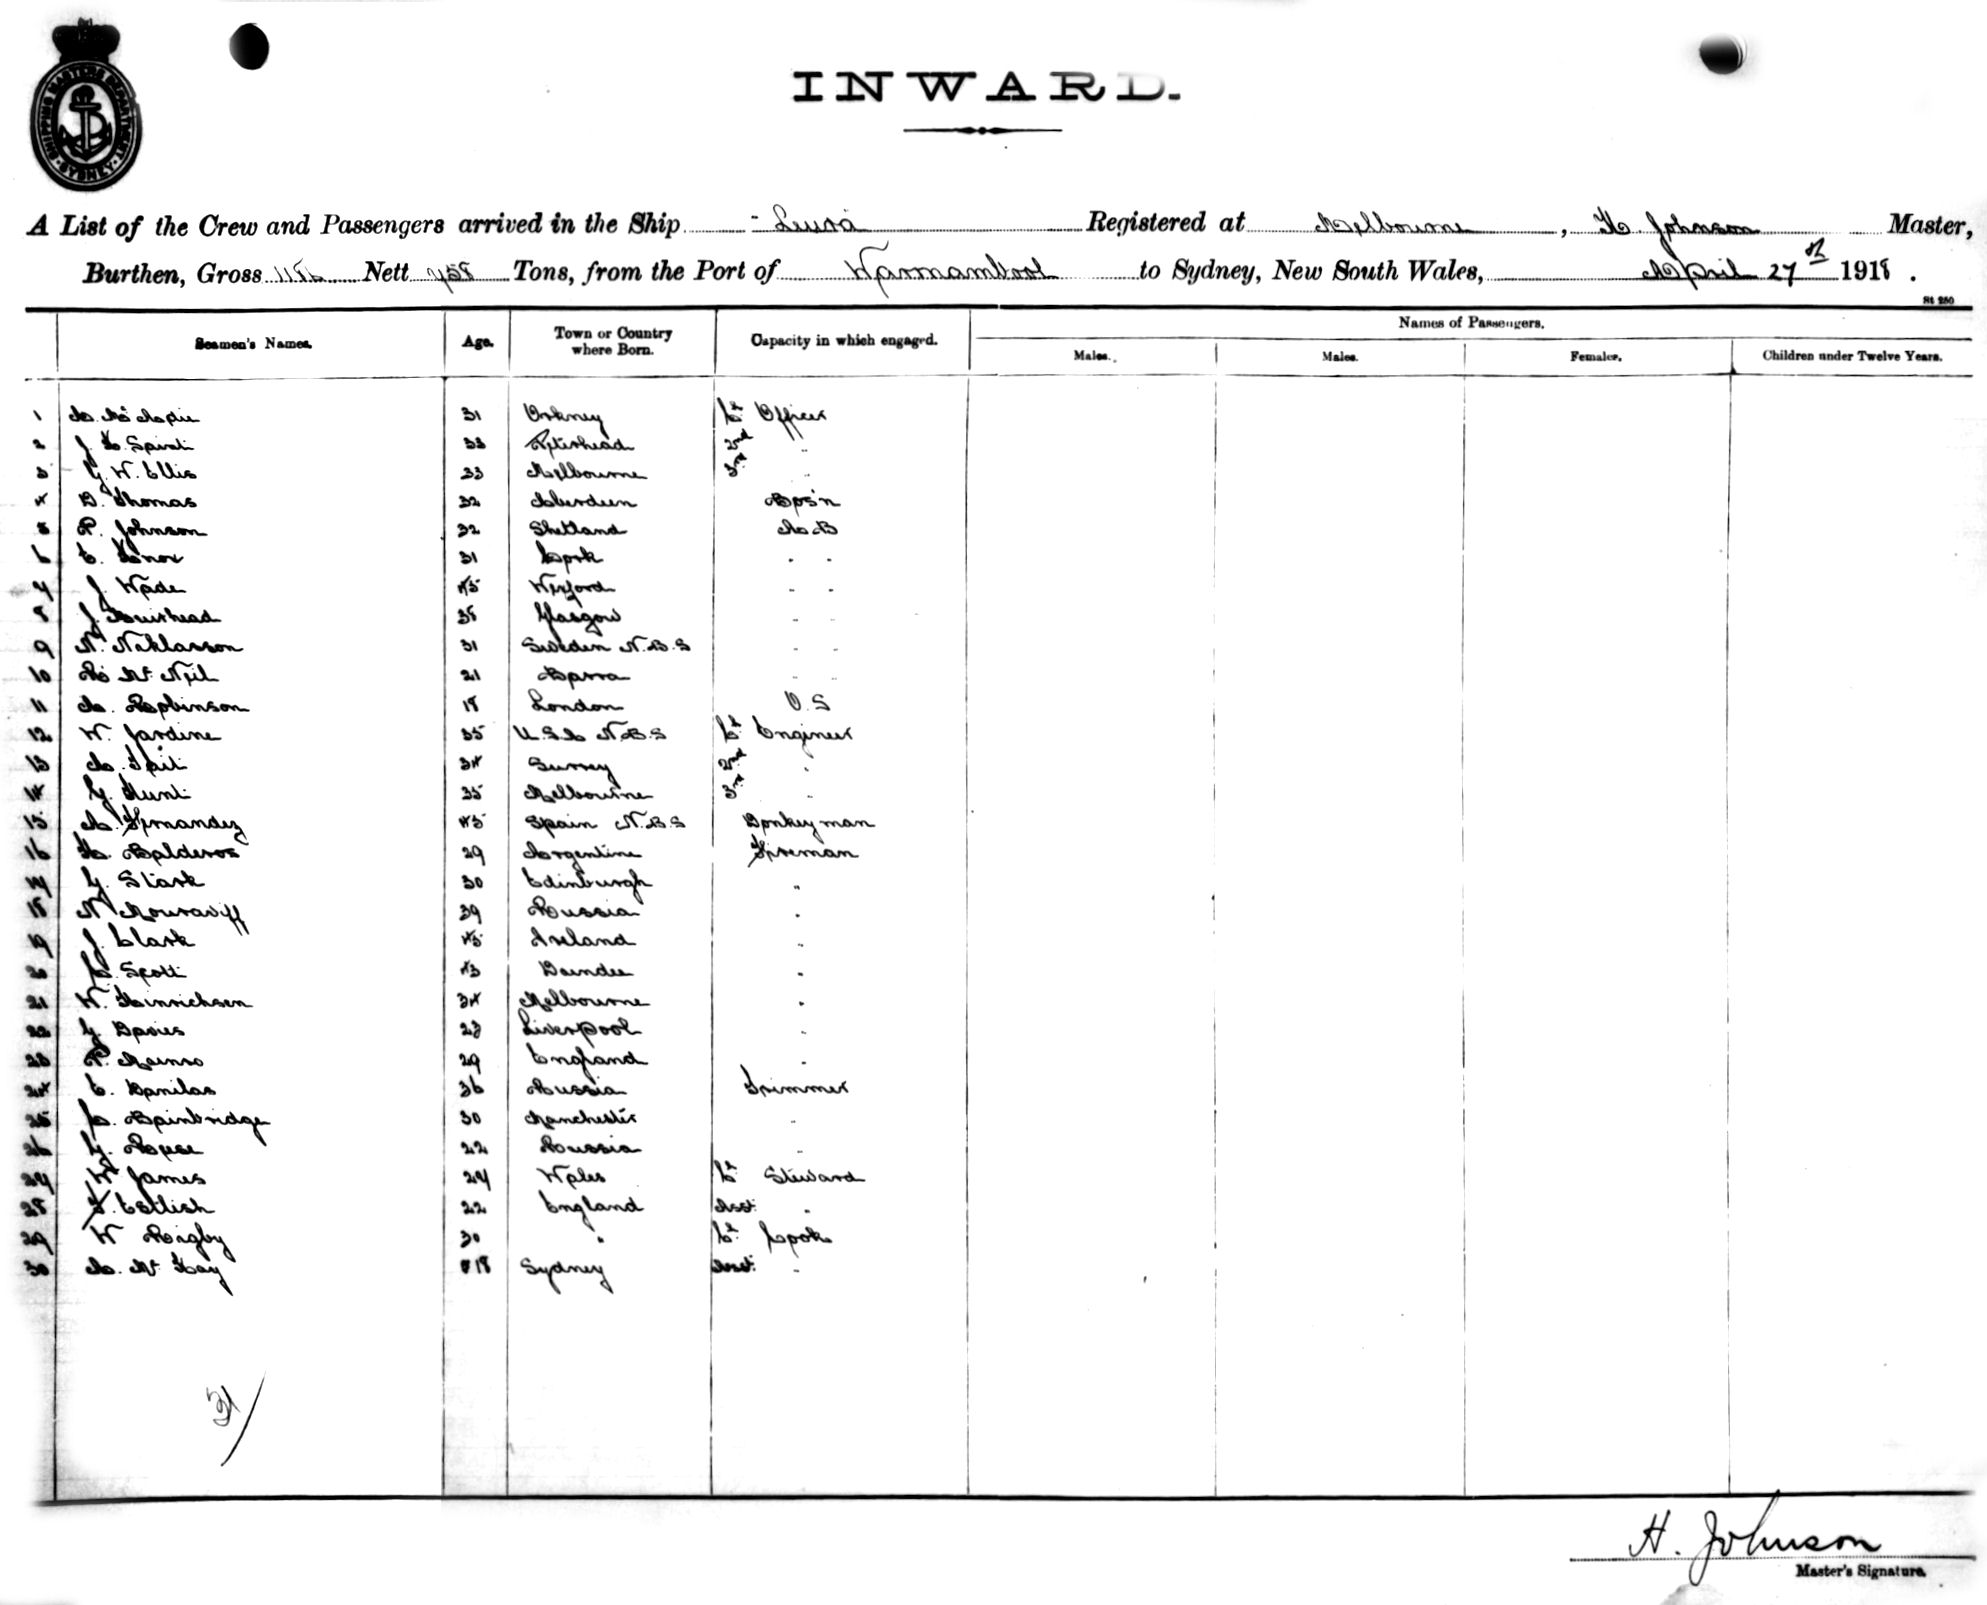 SHIPPING MASTERS DEPARTMENT SYDNEY
INWARD.
A List of the Crew and Passengers arrived in the Ship Leura Registered at Melbourne, H. Johnson Master,
Burthen, Gross Nett 758 Tons, from the Port of Warrnambool to Sydney, New South Wales, April 27th 1918.
St 280
Seamen's Names. Age. Town or Country where Born. Capacity in which engaged. Names of Passengers.
Males. Males. Females. Children under Twelve Years.
1 A. McAdie 31 Orkney 1st Officer
2 J. H. Spink Peterhead 2nd "
3 G. W. Ellis 33 Melbourne 3rd "
4 D. Thomas 32 Aberdeen Bos'n
5 P. Johnson 32 Shetland A B
6 E. Knox 31 Cork " "
7 J. Wade 45 Wexford " "
8 J. Muirhead 38 Glasgow " "
9 N. Nicklasson 31 Sweden N.B.S " "
10 R McNeil 21 Barra " "
11 A. Robinson 18 London O.S
12 W. Jardine 35 U.S.A N.B.S 1st Engineer
13 A. Tait 34 Surrey 2nd "
14 G. Hunt 35 Melbourne 3rd "
15 A. Fernandez 45 Spain N.B.S Donkeyman
16 H. Balderos 29 Argentine Fireman
17 G. Stark 30 Edinburgh "
18 N Mouraviff 39 Russia "
19 J. Clark 45 Ireland "
20 C. Scott 43 Dundee "
21 W. Hinrichsen 34 Melbourne "
22 G. Davies 23 Liverpool "
23 P. 29 England "
24 E. Danilas 36 Russia Trimmer
25 C. Bainbridge 30 Manchester "
26 G. Russe 22 Russia "
27 W James 27 Wales 1st Steward
28 F. Estlick 22 England Asst "
29 W Rigby 30 " 1st Cook
30 A. McKay 18 Sydney Asst "
31
H. Johnson
Master's Signature.